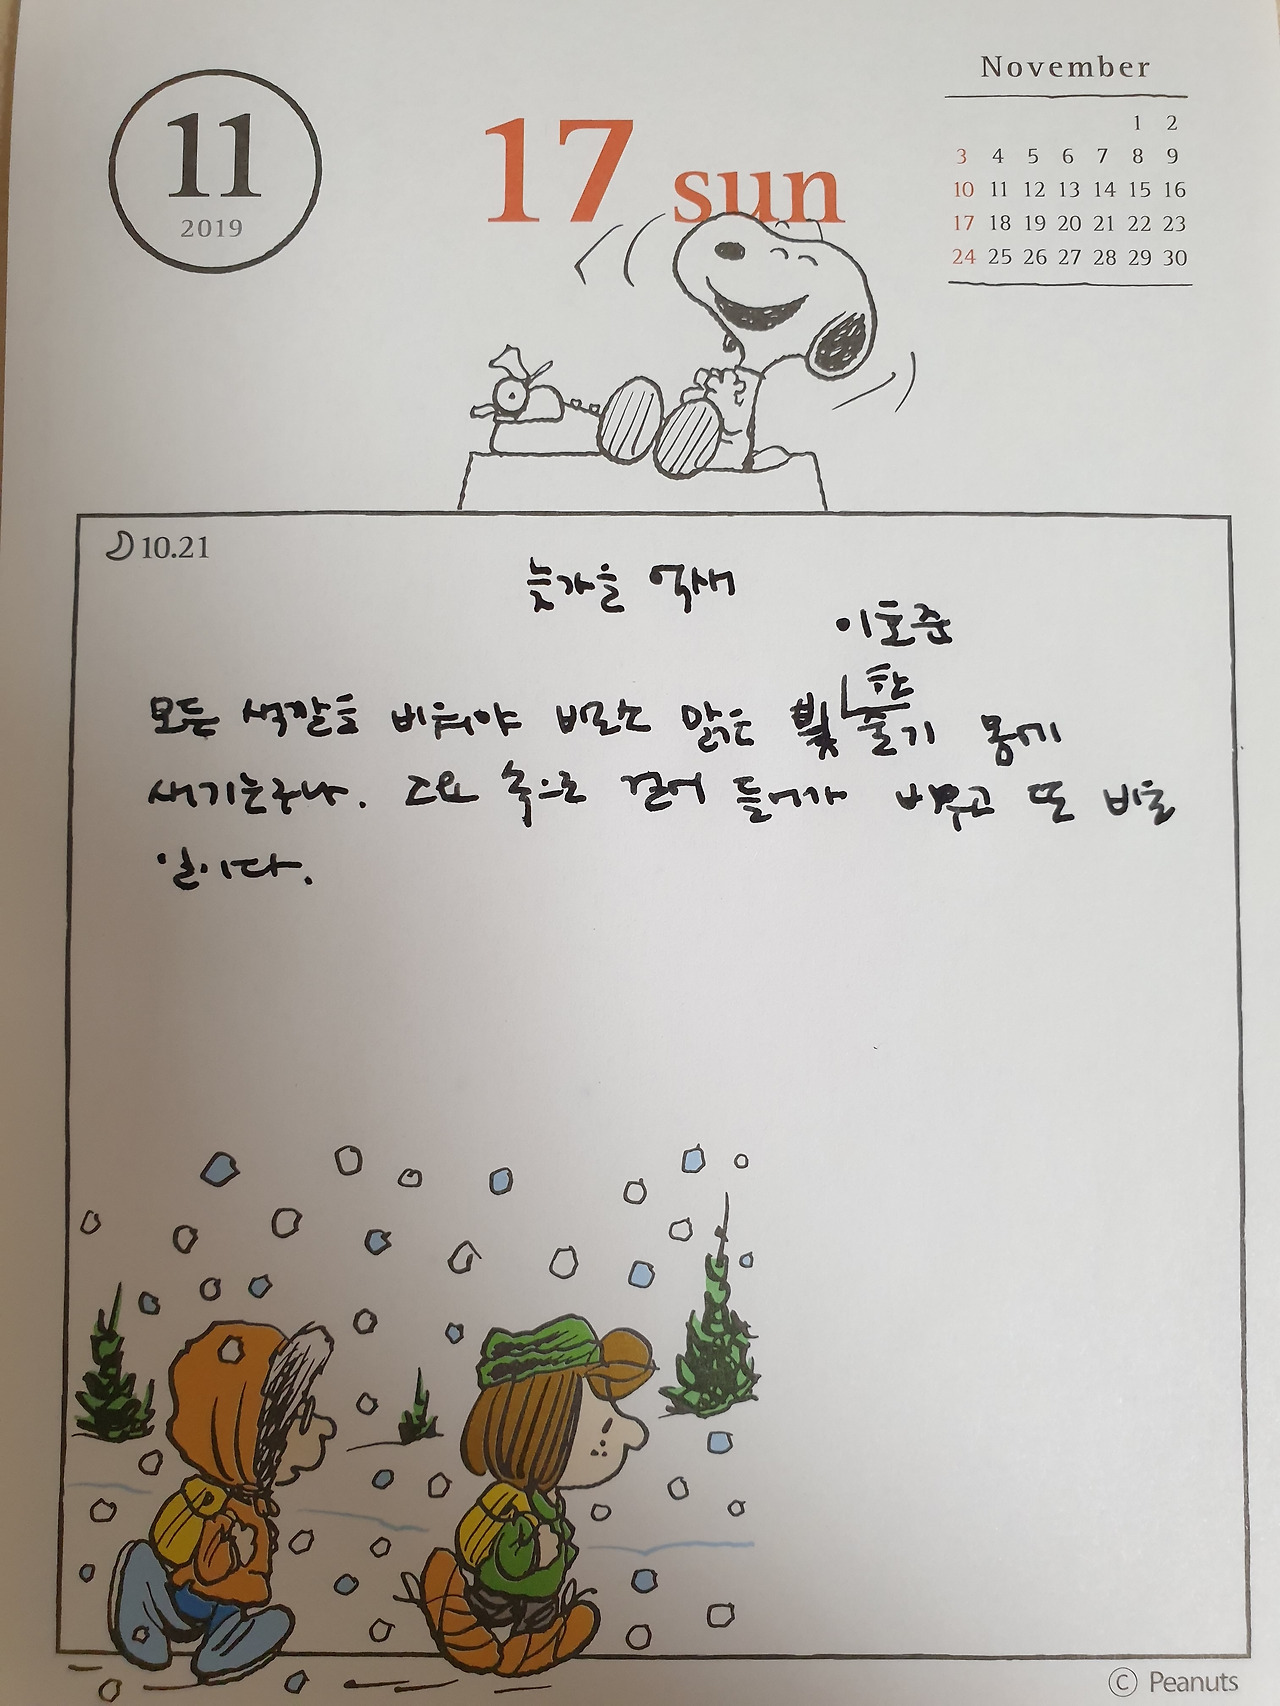 11
2019
17 sun
November
1 2
3 4 5 6 7 8 9
10 11 12 13 14 15 16
17 18 19 20 21 22 23
24 25 26 27 28 29 30
10.21
늦가을 억새
이호준
모든 색깔을 비워야 비로소 맑은 빛 한 줄기 몸에
새기는구나. 고요 속으로 걸어 들어가 비우고 또 비울
일이다.
© Peanuts